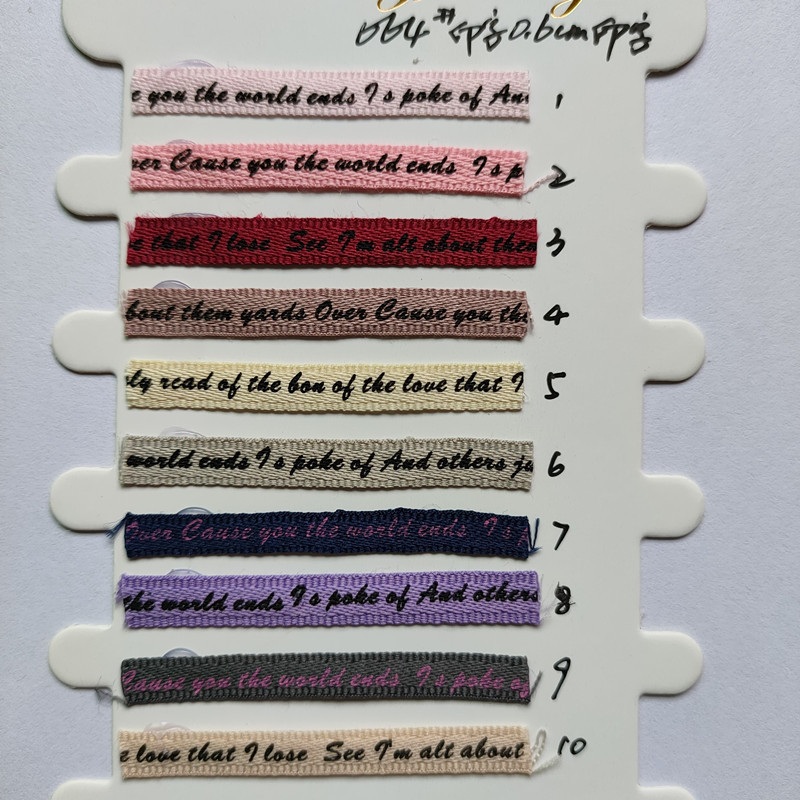 664# 印字0.6cm印字
e you the world ends I s poke of An
1
ver Cause you the world ends I s p
2
e that I lose See I'm alt about them
3
bout them yards Over Cause you th
4
ly read of the bon of the love that I
5
world ends I s poke of And others ju
6
Over Cause you the world ends I s p
7
the world ends I s poke of And others
8
Cause you the world ends I s poke of
9
e love that I lose See I'm alt about
10